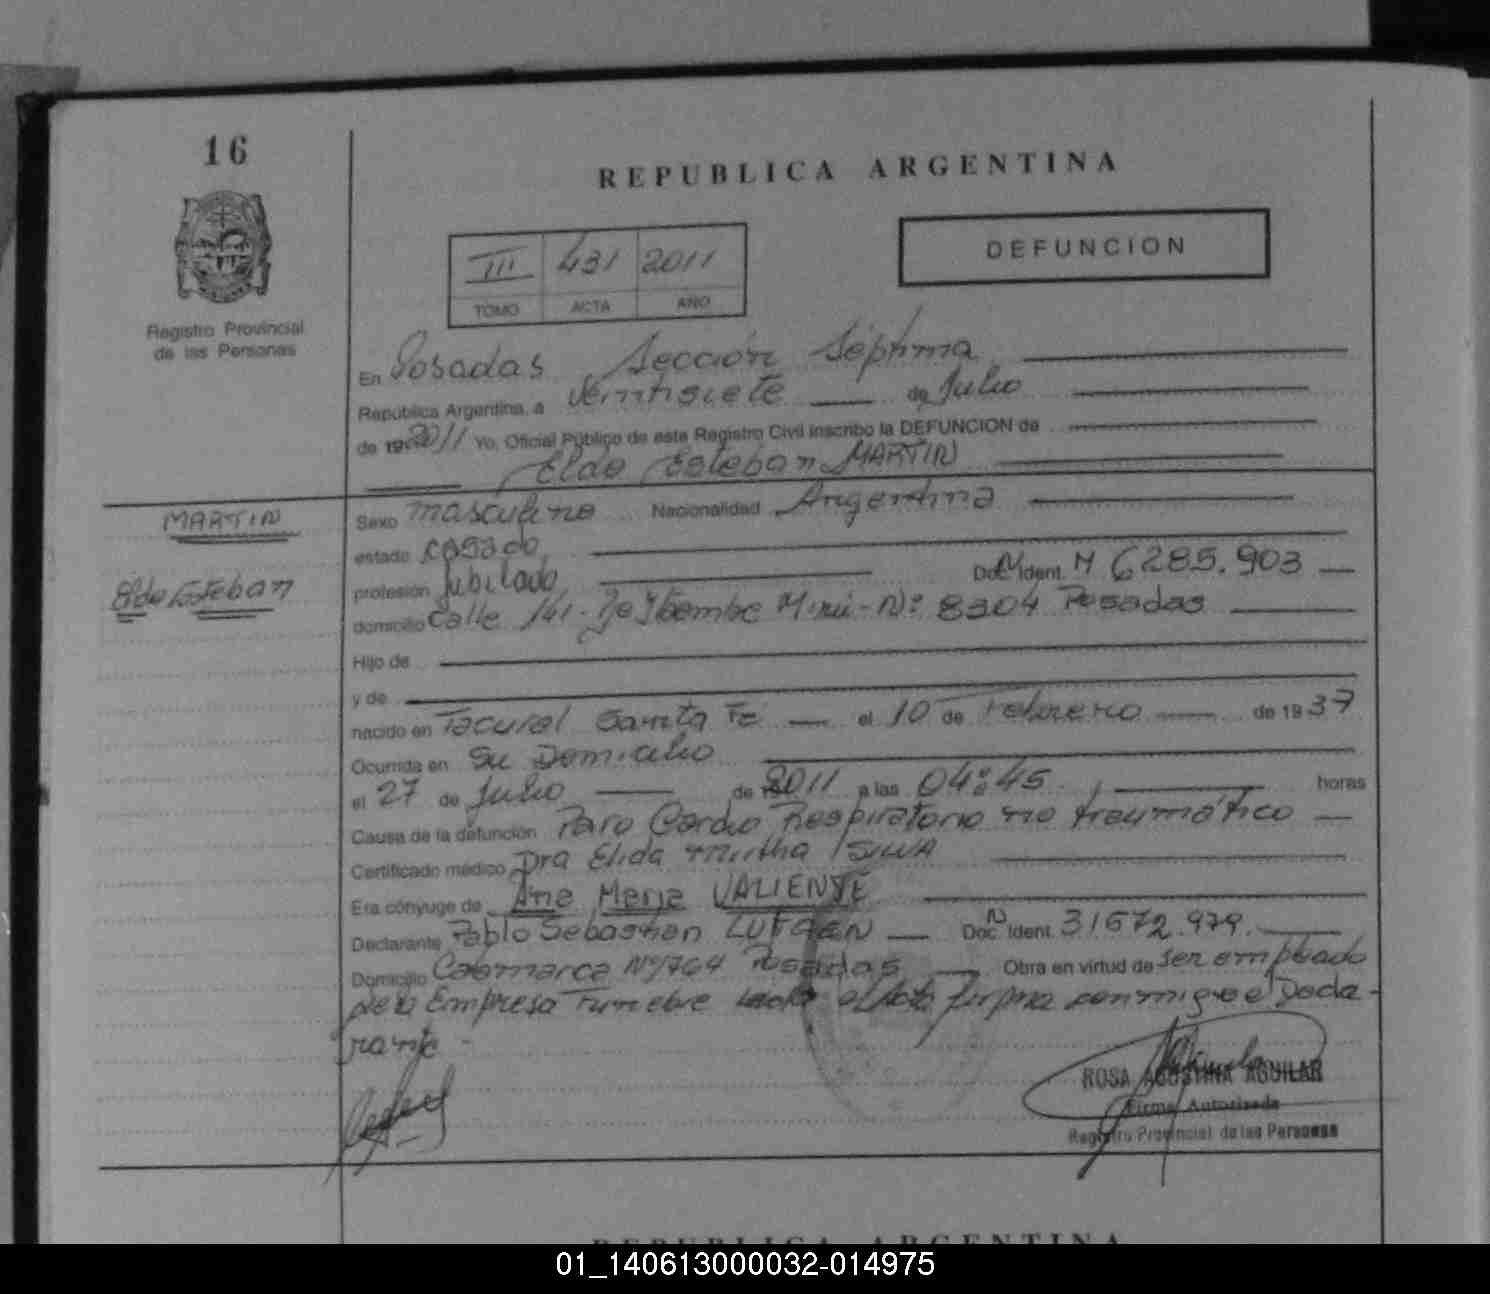 16
REPUBLICA ARGENTINA
Registro Provincial
de las Personas
III 431 2011
TOMO ACTA AÑO
DEFUNCION
En Posadas Sección Séptima
República Argentina, a Veintisiete de Julio
de 19 2011 Yo, Oficial Público de este Registro Civil inscribo la DEFUNCION de
Eldo Esteban MARTIN
MARTIN
Eldo Esteban
Sexo masculino Nacionalidad Argentina
estado casado
profesión Jubilado Doc. Ident. M 6285.903
domicilio Calle 141 - Mini - Nº 8304 Posadas
Hijo de
y de
nacido en Tacural Santa Fe el 10 de Febrero de 1937
Ocurrida en Su Domicilio
el 27 de Julio de 2011 a las 04:45 horas
Causa de la defunción Paro Cardio Respiratorio no traumático
Certificado médico Dra Elida Mirtha SILVA
Era cónyuge de Ana Maria VALIENTE
Declarante Pablo Sebastian Doc. Ident. 31572.979.
Domicilio Catamarca Nº1764 Posadas Obra en virtud de ser empleado
de la Empresa Funebre el Acta firma conmigo el Decla-
rante -
ROSA AGUSTINA AGUILAR
Firma Autorizada
Registro Provincial de las Personas
REPUBLICA ARGENTINA
01_140613000032-014975